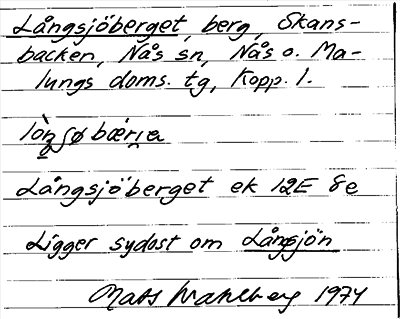 Långsjöberget, berg, Skans-
backen, Nås sn, Nås o. Ma-
lungs doms. tg, Kopp. l.
Långsjöberget ek 12E 8e
Ligger sydost om Långsjön
Mats Wahlberg 1974